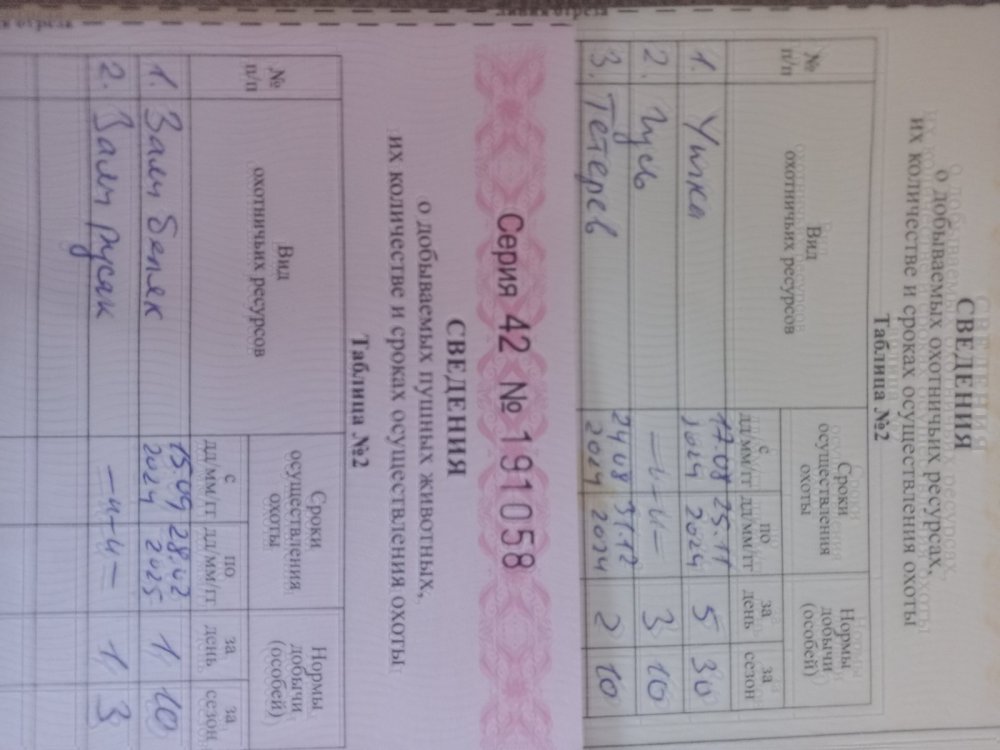 СВЕДЕНИЯ
о добываемых охотничьих ресурсах,
их количестве и сроках осуществления охоты
Таблица №2
№ п/п Вид охотничьих ресурсов Сроки осуществления охоты Нормы добычи (особей)
с дд/мм/гг по дд/мм/гг за день за сезон
1. Утка 17.08 2024 25.11 2024 5 30
2. Гусь —и—и— 3 10
3. Тетерев 24 08 2024 31.12 2024 2 10
Серия 42 № 191058
СВЕДЕНИЯ
о добываемых пушных животных,
их количестве и сроках осуществления охоты
Таблица №2
№ п/п Вид охотничьих ресурсов Сроки осуществления охоты Нормы добычи (особей)
с дд/мм/гг по дд/мм/гг за день за сезон
1. Заяц беляк 15.09 2024 28.02 2025 1 10
2. Заяц русак —и—и— 1 3